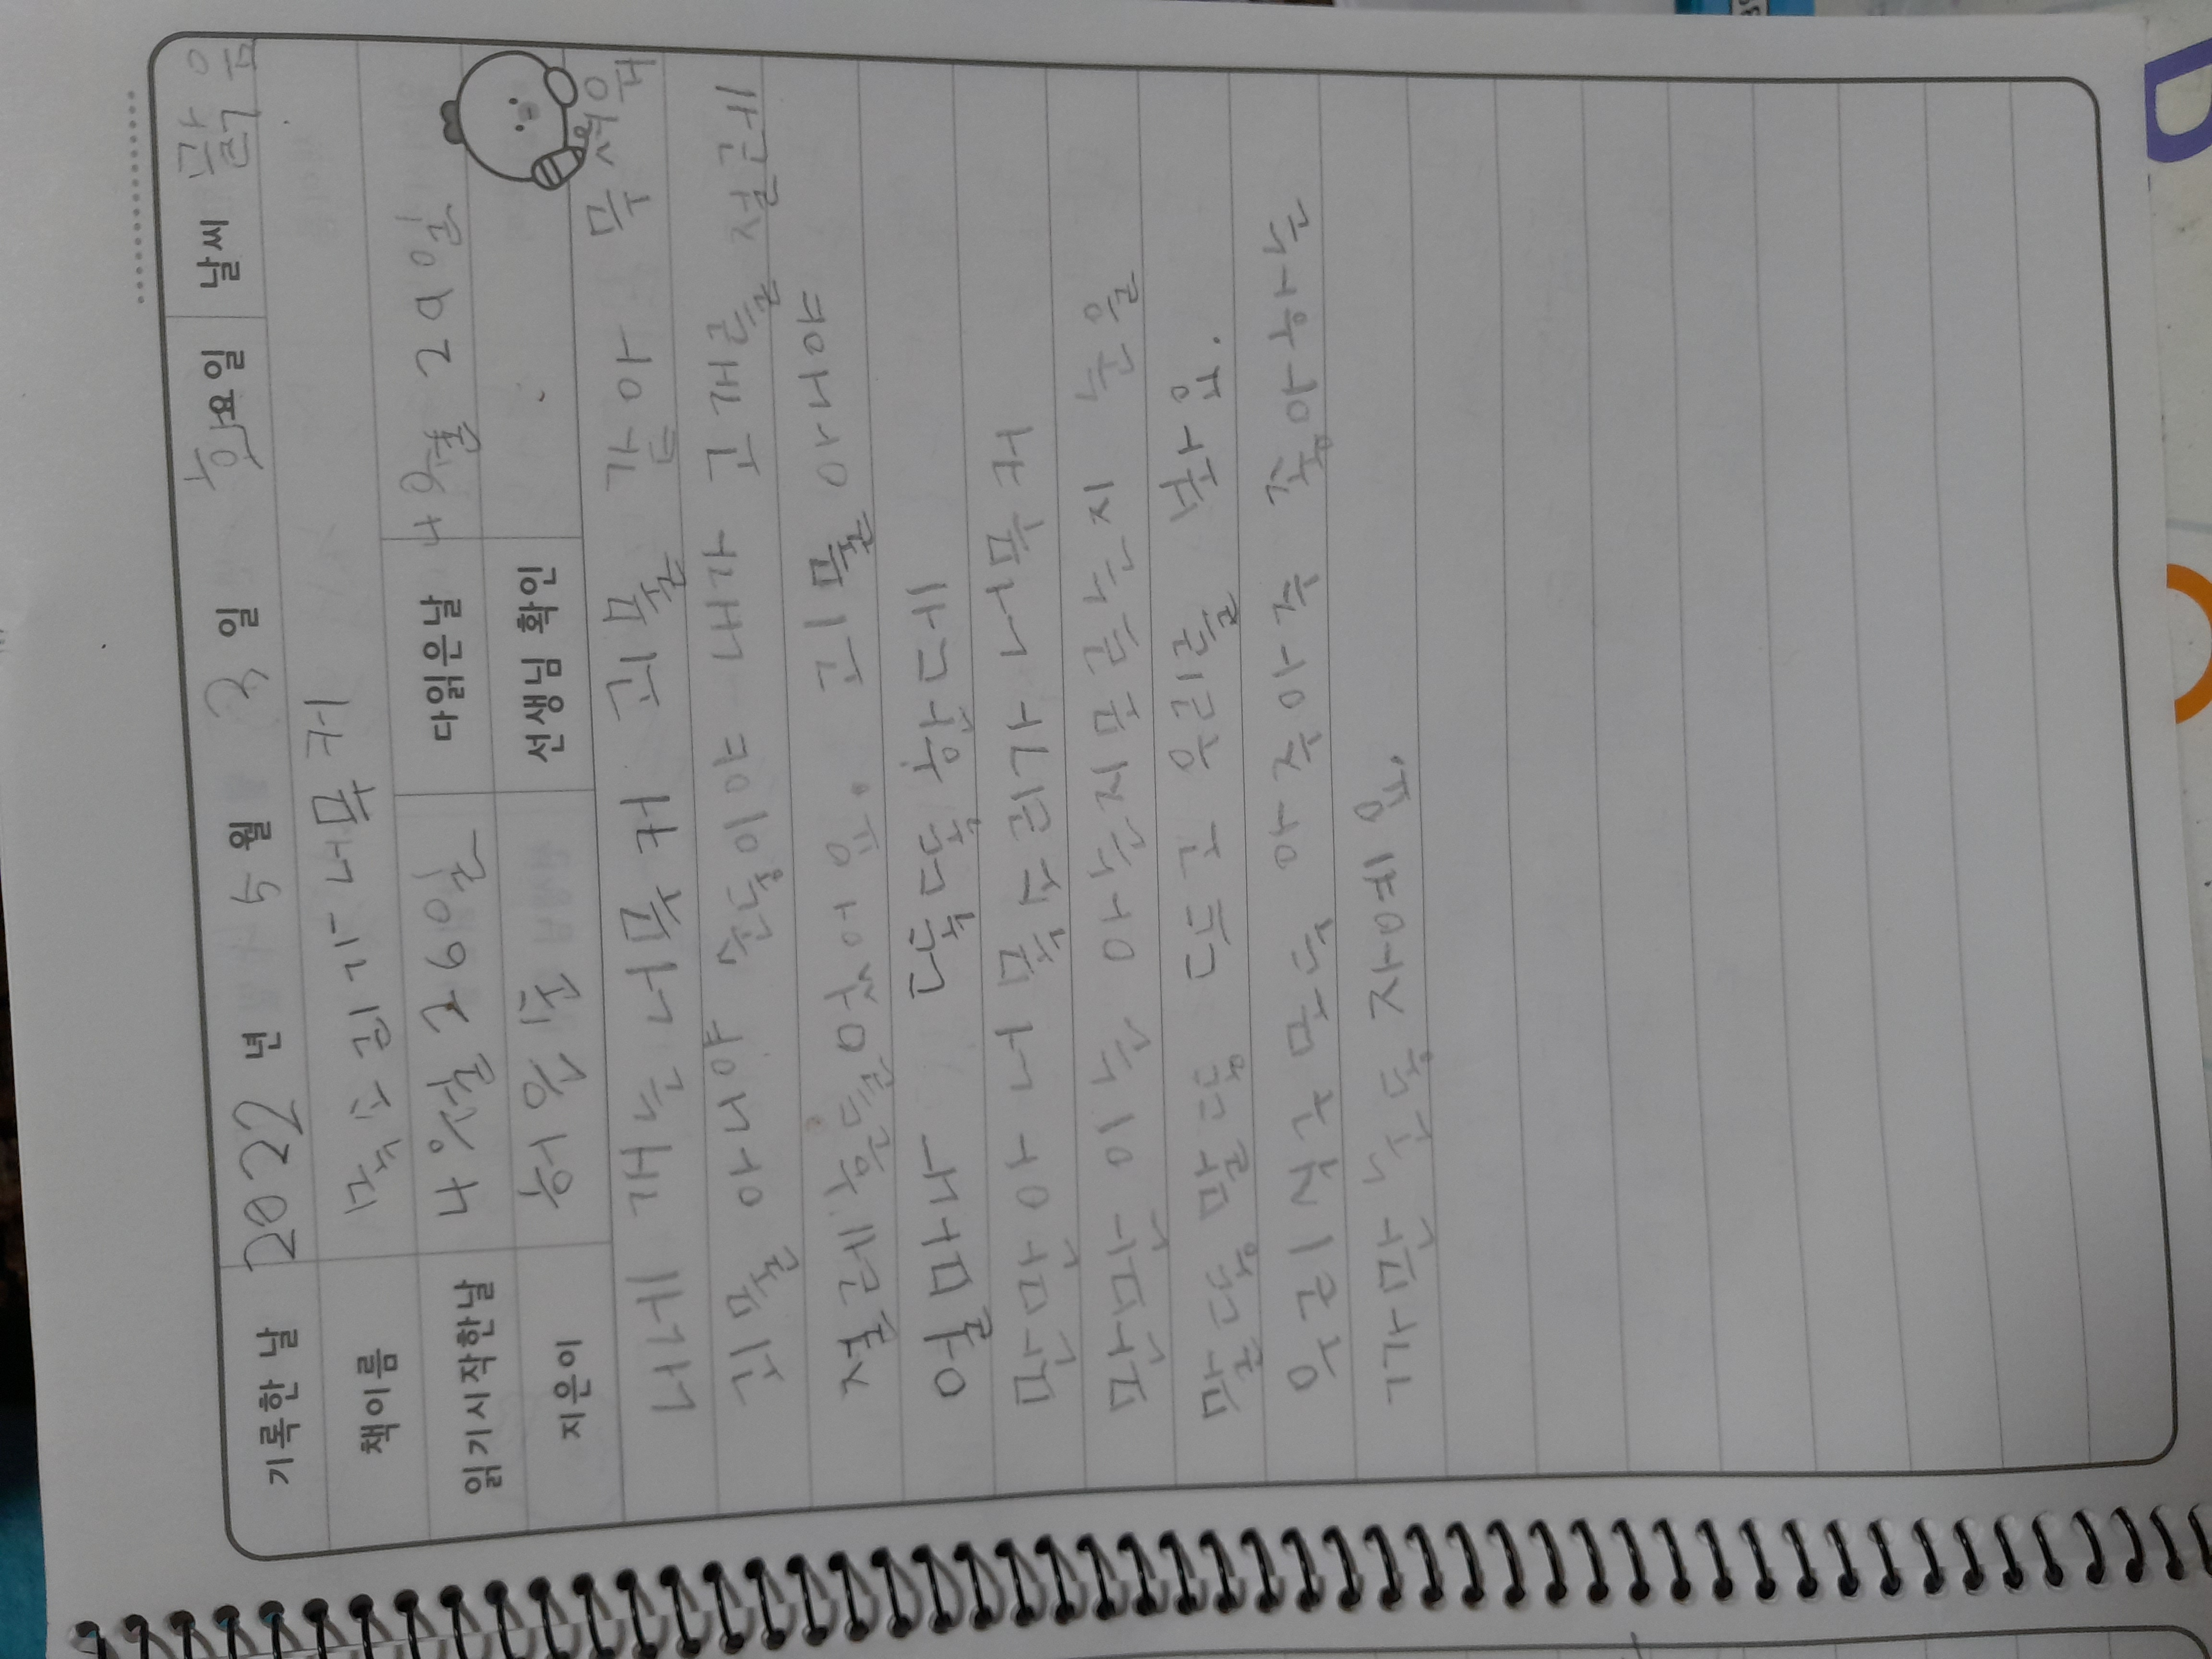 기록한 날 2022 년 5 월 3 일 화요일 날씨 맑음
책이름 목소리가 너무 커
읽기시작한날 4월 26일 다읽은날 4월 29일
지은이 허은순 선생님 확인
너네 개는 너무 커 괴물 같아 무서워
괴물 아니야 순둥이야 내가 고개를 절레
절레 흔들었어요. 괴물 아니야
얼마나 똑똑한데
만만아 너 목소리가 너무 커
만만이는 아는지모르는지 눈을
말똥말똥 뜨고 우리를 봐요.
우리식구 모두 아주아주 좋아하는
까만 눈동자예요.